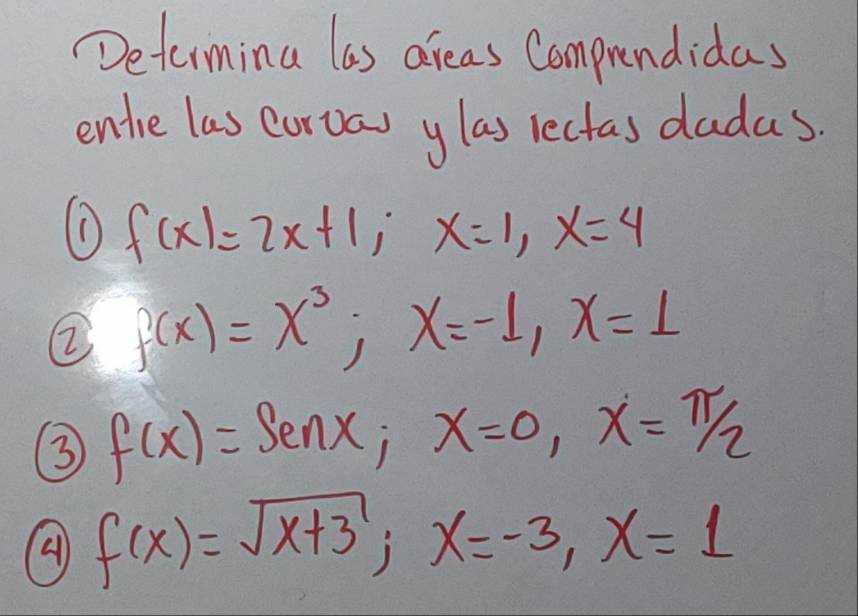 Determina las áreas Comprendidas
entre las curvas y las rectas dadas.
① f(x)=2x+1; x=1, x=4
② f(x) = x³; x=-1, x=1
③ f(x) = Senx; x=0, x=π/2
④ f(x)= √x+3; x=-3, x=1